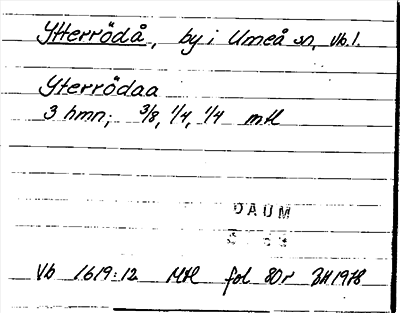 Ytterrödå, by i Umeå sn, Vb. l.
Yterrödaa
3 hmn; 3/8, 1/4, 1/4 mtl
DAUM
Vb 1619:12 Mtl fol 80r BH 1978